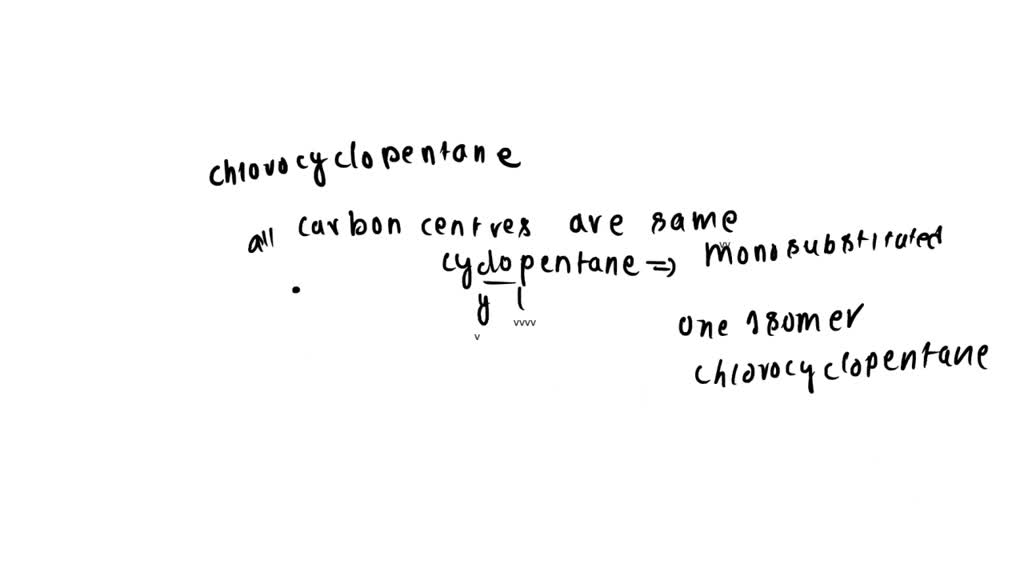 chlorocyclopentane
all carbon centres are same
cyclopentane => monosubstituted
y l
v vvvv
one isomer
chlorocyclopentane